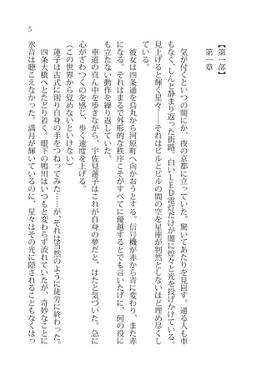 【第一部】
第一章
気が付くといつの間にか、夜の京都に立っていた。驚いてあたりを見回す。通る人も車
もなく、しんと静まり返った街路。白いLED電灯だけが闇に煌々と光を投げかけている。
見上げると輝く星々――それはビルとビルの間の空を星座が判然としないほど埋め尽くし
ている。
彼女は四条通を烏丸から河原町へ向かおうとする。信号機が赤から青に変わり、また赤
になる。それはまるで外形的な秩序こそがすべてに優越するとでも言いたげに、何の役に
も立たない動作を繰り返していた。
車道の真ん中を歩きながら、宇佐見蓮子はこれが自身の夢だと、はたと気づいた。急に
心がざわつくのを感じ、歩く速度を上げる。
(この世界から覚めないといけない)
蓮子は古式に則り自身の手をつねってみた……が、それは当然のように徒労に終わった。
四条大橋へとたどり着く。眼下の鴨川はいつもと変わらず流れていたが、奇妙なことに
水音は聴こえなかった。満月が輝いているのに、星々はその光に隠されることもなくはっ
5